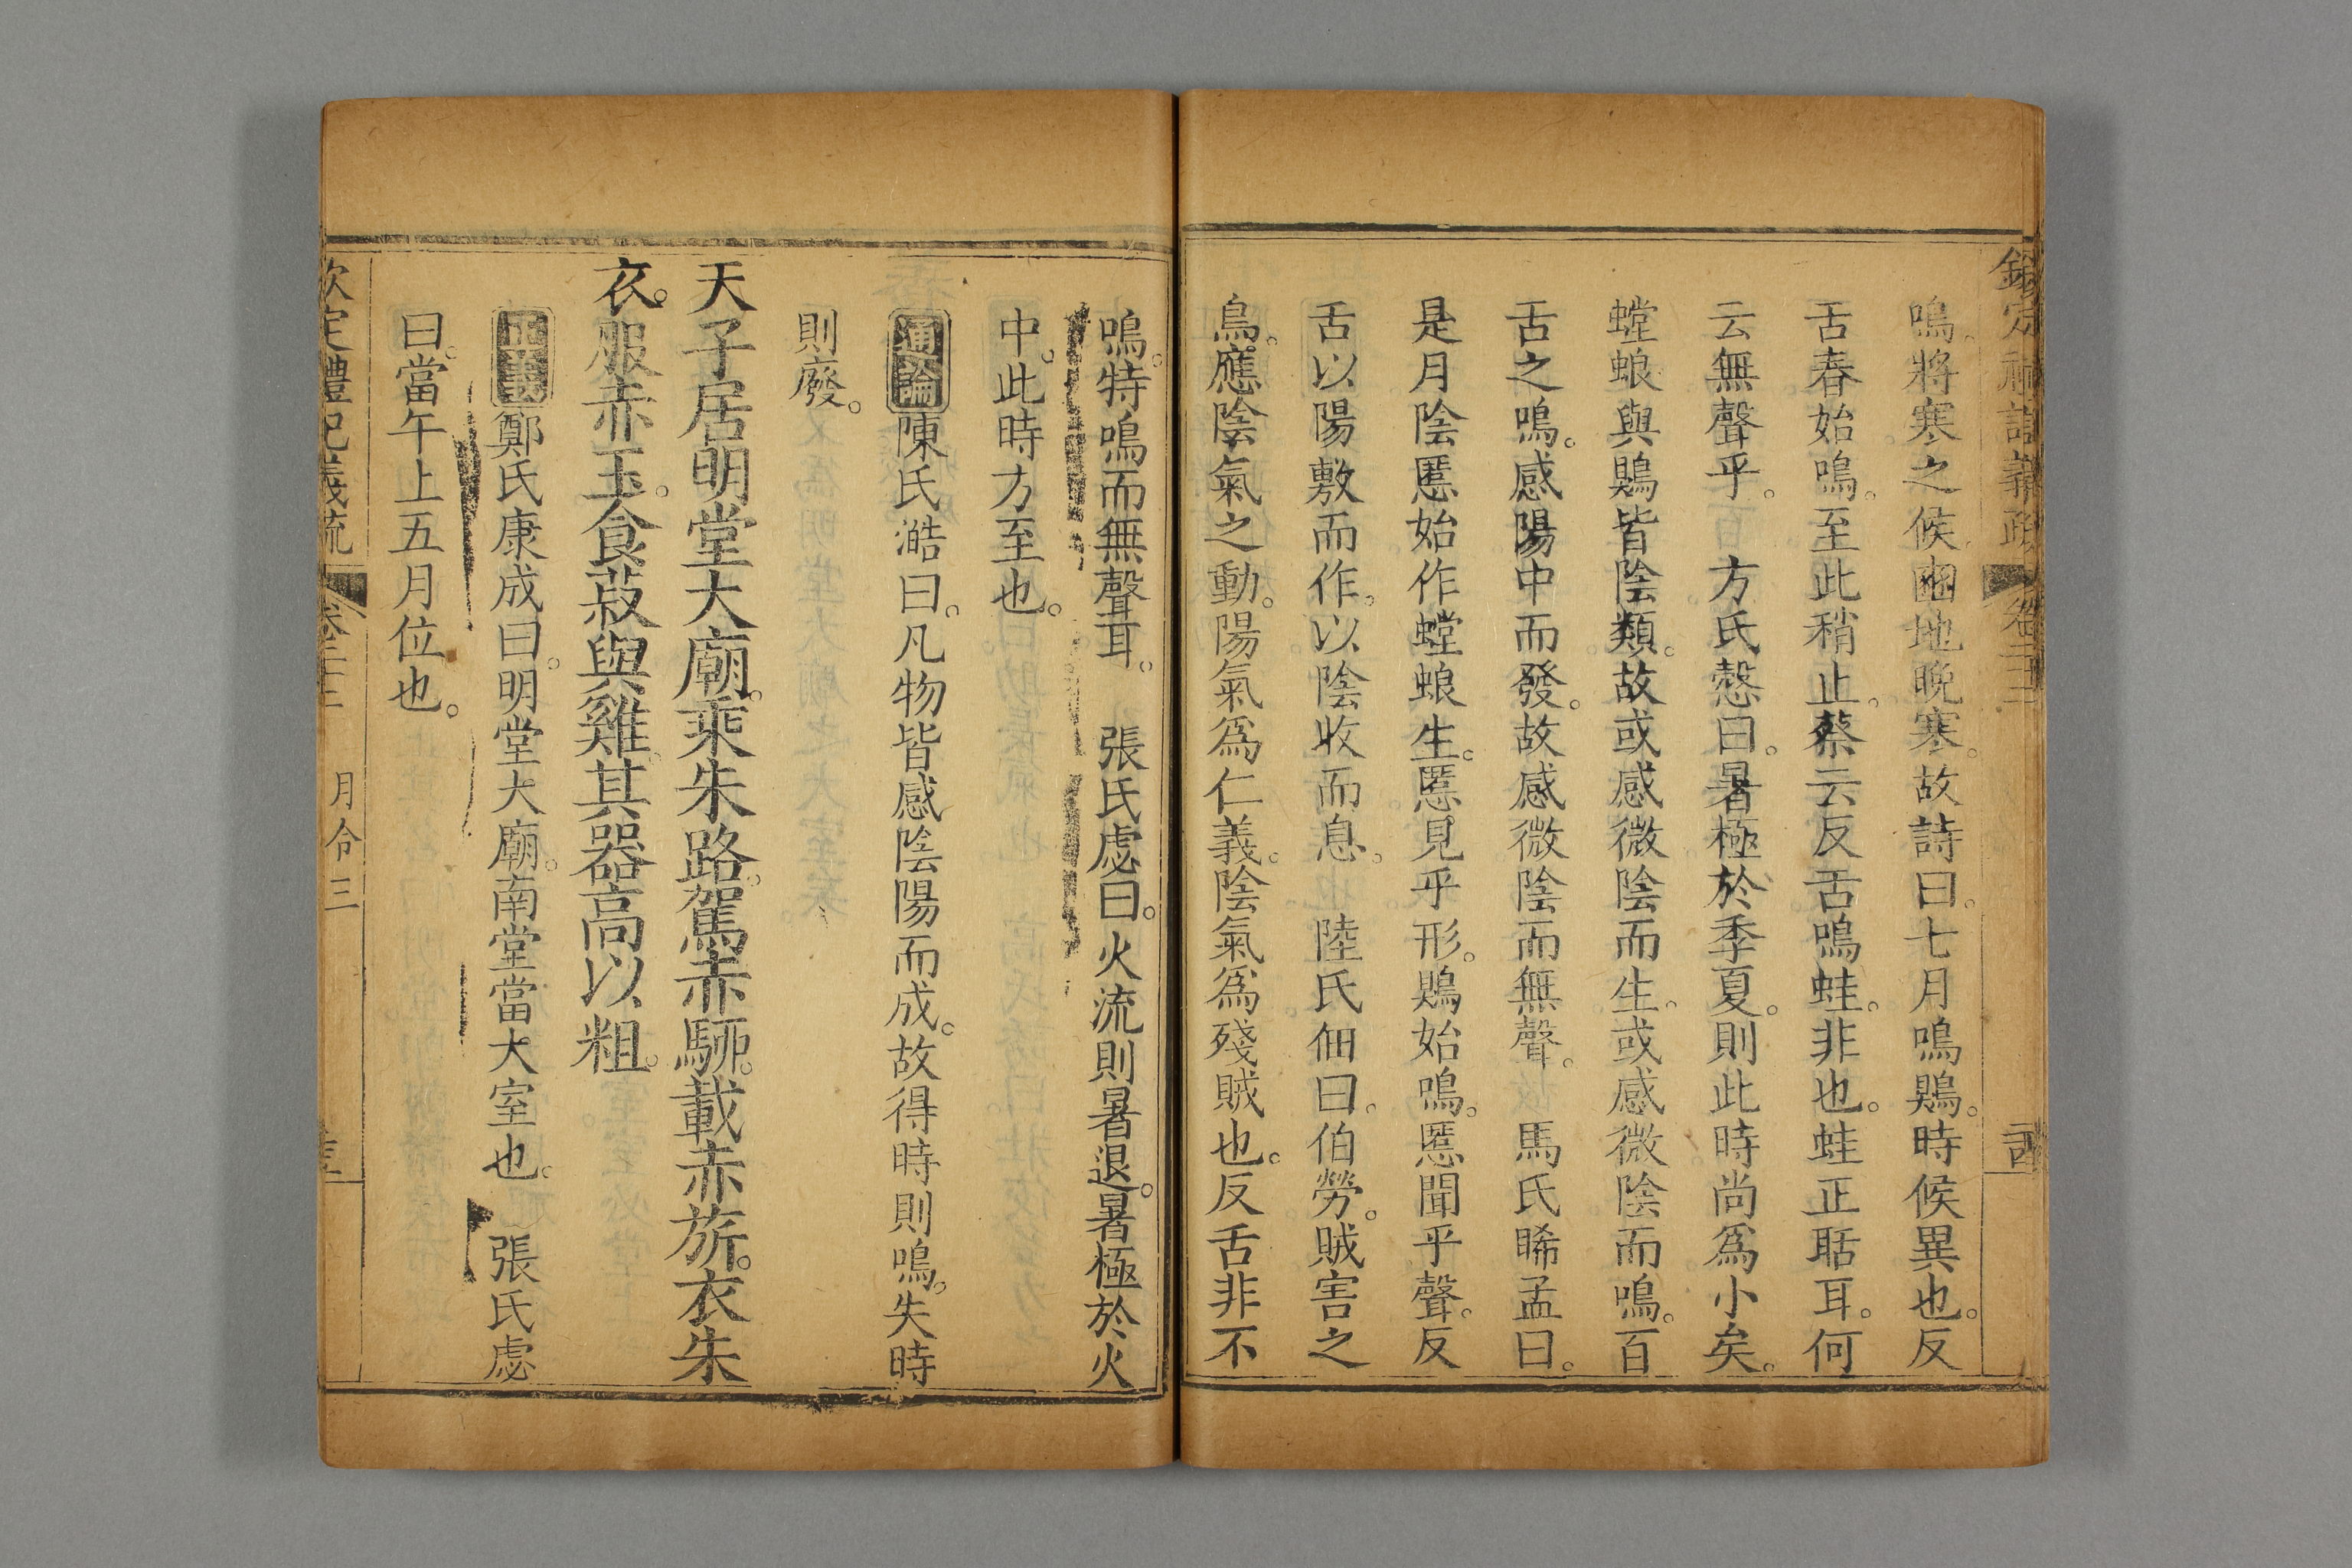 欽定禮記義疏 卷二十二
鳴。將寒之候。豳地晚寒。故詩曰。七月鳴鵙。時候異也。反
舌春始鳴。至此稍止。蔡云反舌鳴蛙。非也。蛙正聒耳。何
云無聲乎。 方氏慤曰。暑極於季夏。則此時尚爲小矣。
螳蜋與鵙皆陰類。故或感微陰而生。或感微陰而鳴。百
舌之鳴。感陽中而發。故感微陰而無聲。 馬氏睎孟曰。
是月陰慝始作螳蜋生。慝見乎形。鵙始鳴。慝聞乎聲。反
舌以陽敷而作。以陰收而息。 陸氏佃曰。伯勞。賊害之
鳥。應陰氣之動。陽氣爲仁義。陰氣爲殘賊也。反舌非不
鳴。特鳴而無聲耳。 張氏虙曰。火流則暑退。暑極於火
中。此時方至也。
通論陳氏澔曰。凡物皆感陰陽而成。故得時則鳴。失時
則廢。
天子居明堂大廟。乘朱路。駕赤駵。載赤旂。衣朱
衣。服赤玉。食菽與雞。其器高以粗。
正義鄭氏康成曰。明堂大廟。南堂當大室也。 張氏虙
曰。當午上五月位也。
欽定禮記義疏 卷二十二 月令三